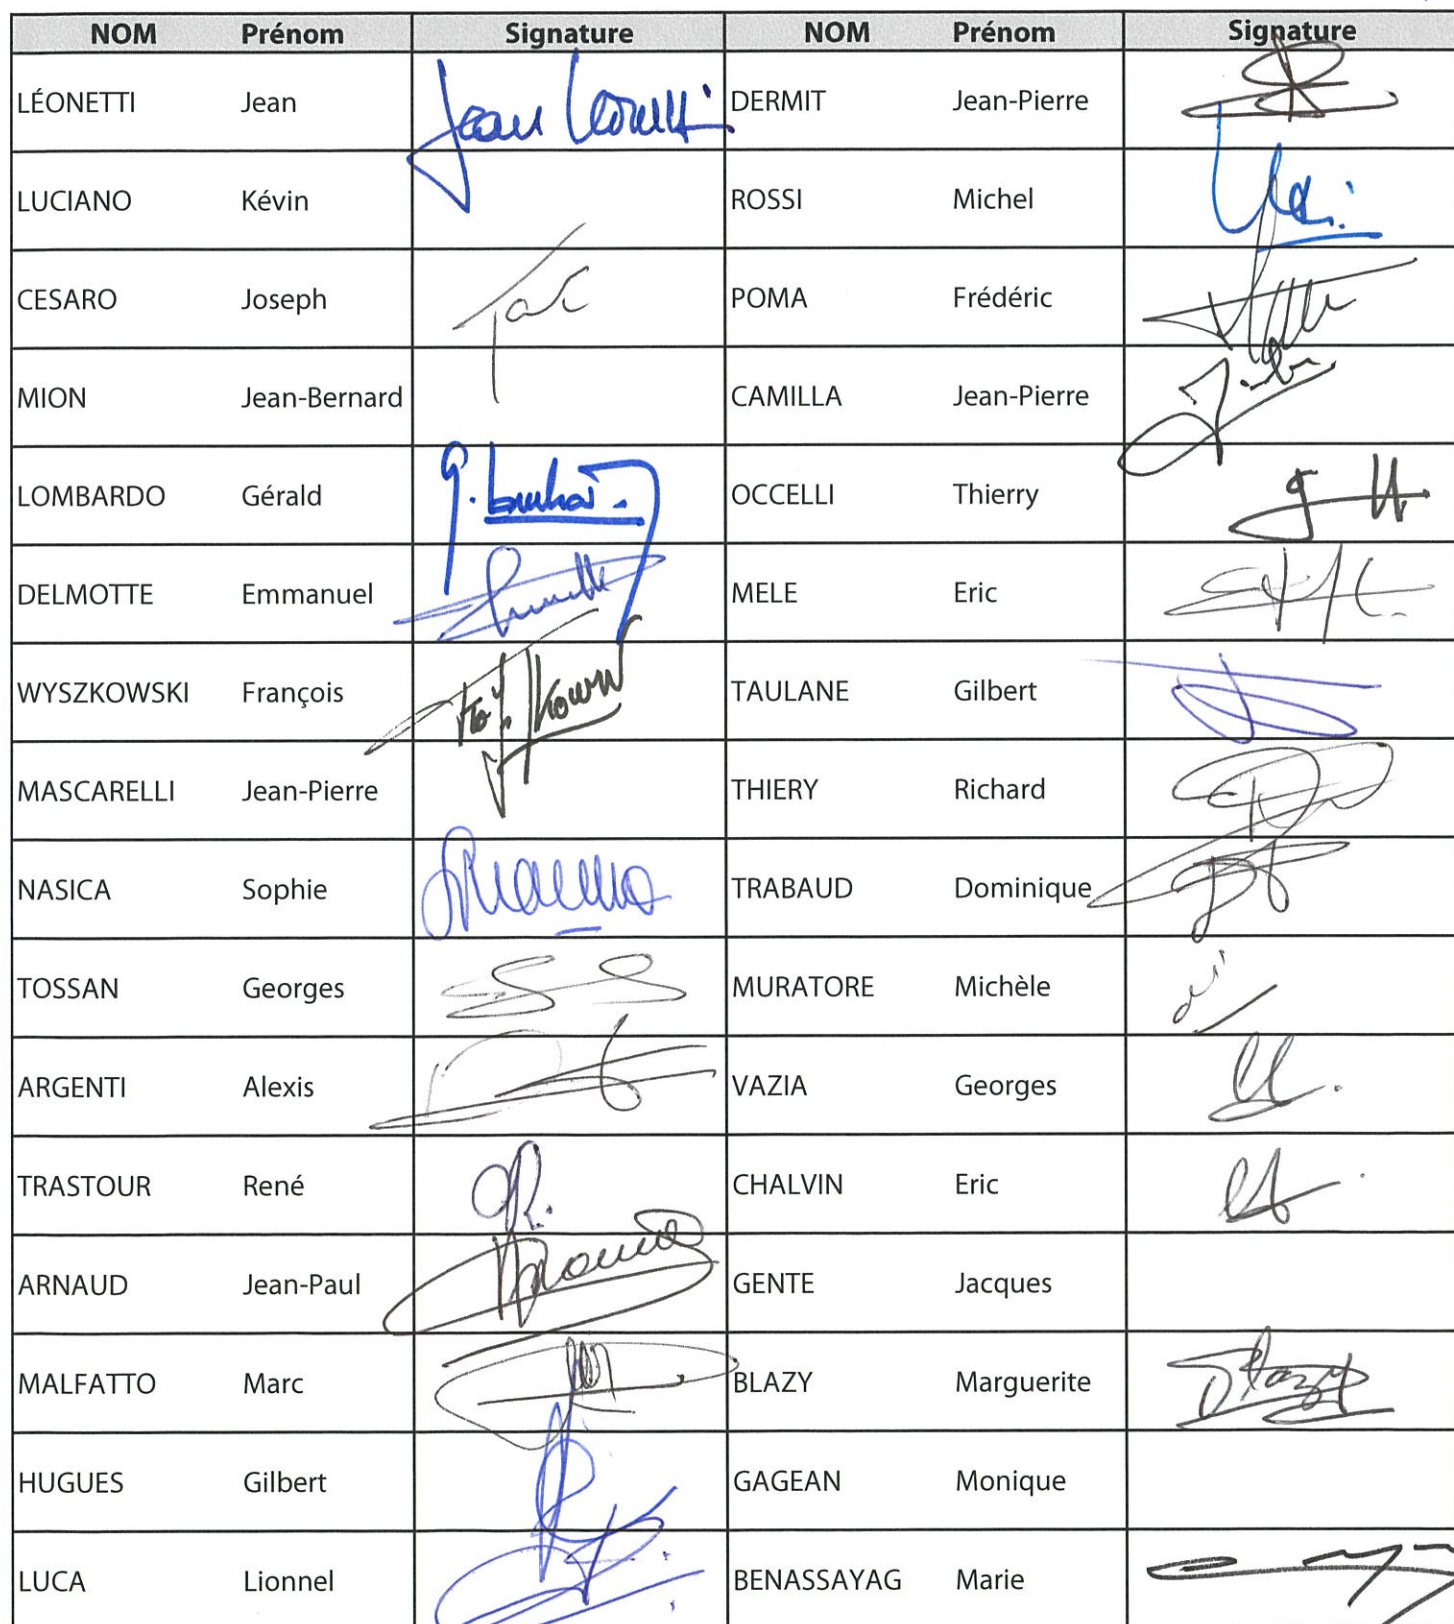 NOM Prénom Signature NOM Prénom Signature
LÉONETTI Jean Jean Leonetti DERMIT Jean-Pierre
LUCIANO Kévin ROSSI Michel
CESARO Joseph POMA Frédéric
MION Jean-Bernard CAMILLA Jean-Pierre
LOMBARDO Gérald OCCELLI Thierry
DELMOTTE Emmanuel MELE Eric
WYSZKOWSKI François TAULANE Gilbert
MASCARELLI Jean-Pierre THIERY Richard
NASICA Sophie TRABAUD Dominique
TOSSAN Georges MURATORE Michèle
ARGENTI Alexis VAZIA Georges
TRASTOUR René CHALVIN Eric
ARNAUD Jean-Paul GENTE Jacques
MALFATTO Marc BLAZY Marguerite Blazy
HUGUES Gilbert GAGEAN Monique
LUCA Lionnel BENASSAYAG Marie